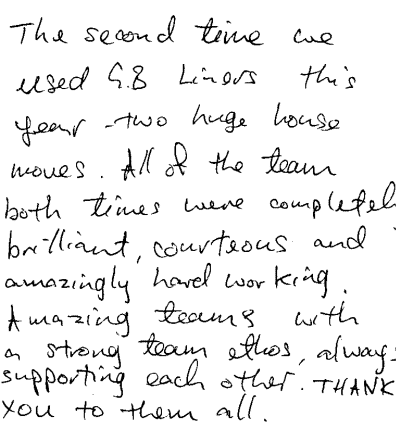 The second time we
used G.B Liners this
year - two huge house
moves. All of the team
both times were completel
brilliant, courteous and
amazingly hard working.
Amazing teams with
a strong team ethos, always
supporting each other. THANK
YOU to them all.